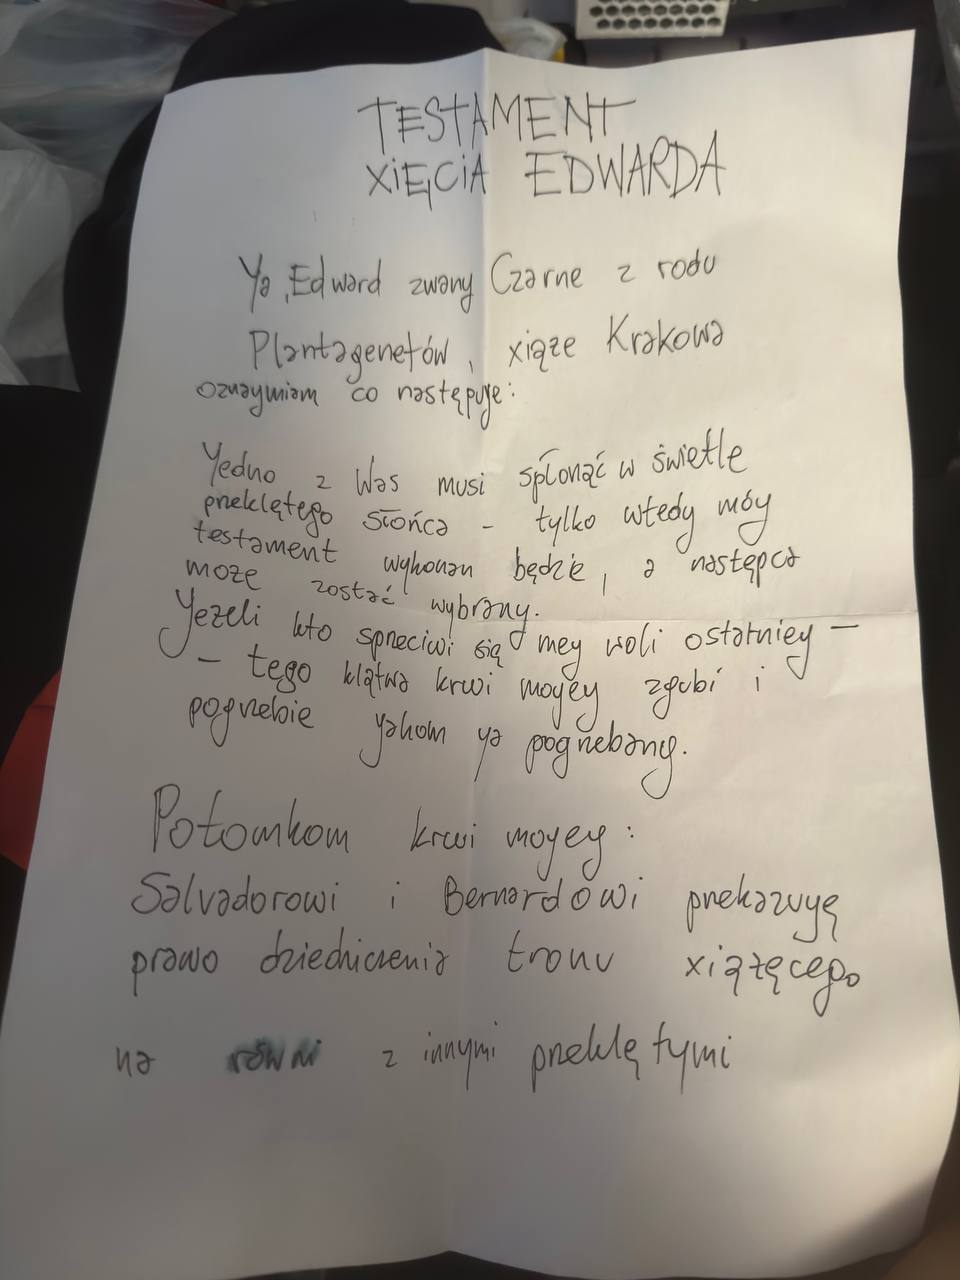 TESTAMENT
XIĘCIA EDWARDA
Ya, Edward zwany Czarne z rodu
Plantagenetów, xiąże Krakowa
oznaymiam co następuje:
Yedno z Was musi spłonąć w świetle
przeklętego słońca - tylko wtedy móy
testament wykonan będzie, a następca
może zostać wybrany.
Yeżeli kto sprzeciwi się mey woli ostatniey -
- tego klątwa krwi moyey zgubi i
pogrzebie yakom ya pogrzebany.
Potomkom krwi moyey:
Salvadorowi i Bernardowi przekazuyę
prawo dziedziczenia tronu xiążęcego
na równi z innymi przeklętymi